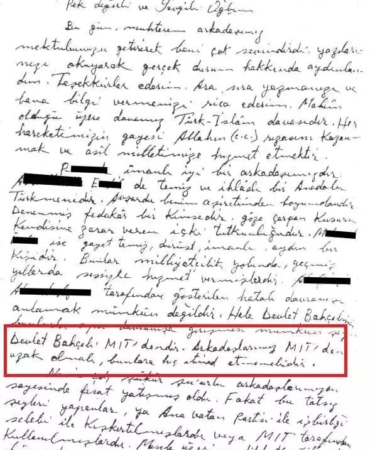 Pek değerli ve Sevgili Oğlum
Bu gün, muhterem arkadaşımız
mektubunuzu getirerek beni çok sevindirdi. yazıları-
nızı okuyarak gerçek durum hakkında aydınlan-
dım. Teşekkürler ederim. Ara, sıra yazmanızı ve
bana bilgi vermenizi rica ederim. Malûm
olduğu üzere davamız Türk-İslâm davasıdır. Her
hareketimizin gayesi Allahın (c.c.) rızasını kazan-
mak ve asil milletimize hizmet etmektir.
imanlı iyi bir arkadaşımızdır.
de temiz ve ihlaslı bir Anadolu
Türkmenidir. bizim aşiretinden
Denenmiş fedakâr bir kimsedir. göze çarpan kusuru
kendisine zarar veren içki tutkunluğudur. M
ise gayet temiz, dürüst, imanlı aydın bir
kişidir. Bunlar milliyetçilik yolunda, geçmiş
yıllarda hizmet vermişlerdir.
tarafından gösterilen hatalı davranışı
anlamak mümkün değildir. Hele Devlet Bahçelinin
mümkün
Devlet Bahçeli MİT'dendir. Arkadaşlarımız MİT'den
uzak olmalı, bunlara hiç itimad etmemelidir.
şükür şuurlu arkadaşlarımızın
sayesinde fesat yatışmış oldu. Fakat bu tatsız
şeyleri yapanlar, ya Anavatan Partisi ile işbirliği
sebebi ile kışkırtılmışlardır veya MİT tarafından
kullanılmışlardır.